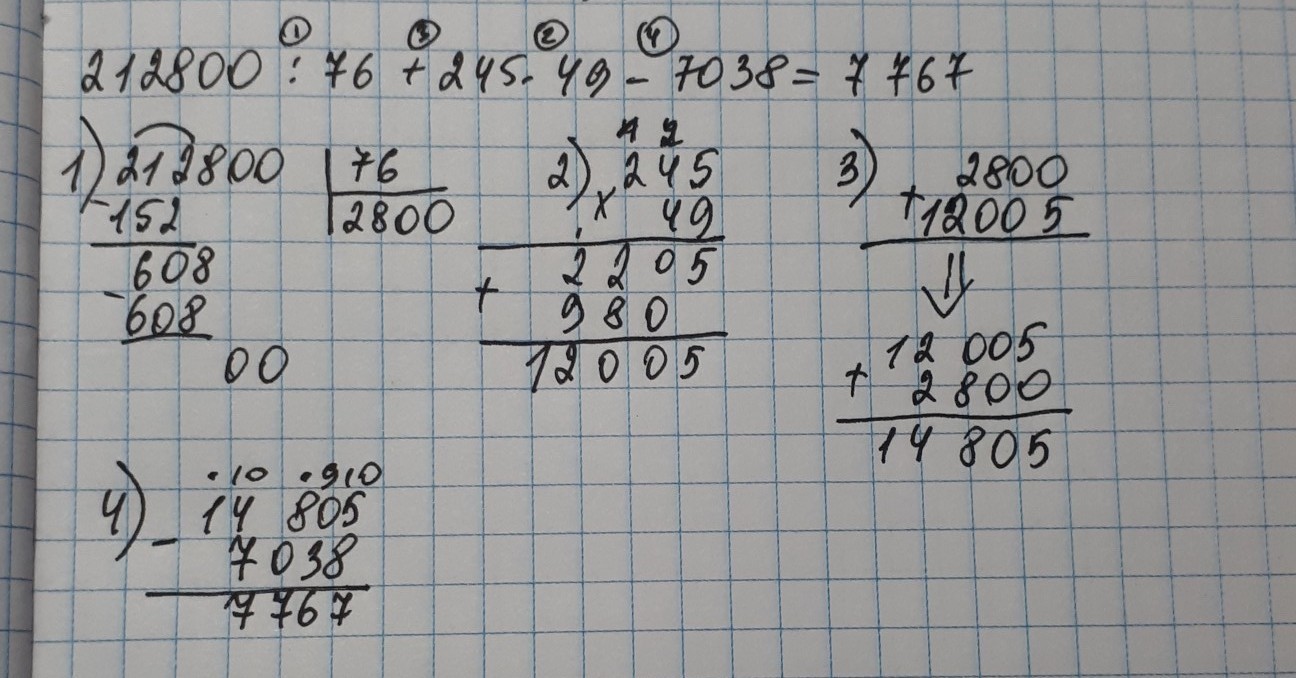 ① ③ ② ④
212800 : 76 + 245 · 49 - 7038 = 7 767
1) 212800 | 76
- 152 | 2800
608
- 608
00
4 2
2) 245
× 49
2205
+ 980
12005
3) 2800
+ 12005
⇓
12 005
+ 2 800
14 805
· 10 · 9 10
4) 14 805
- 7 038
7 767